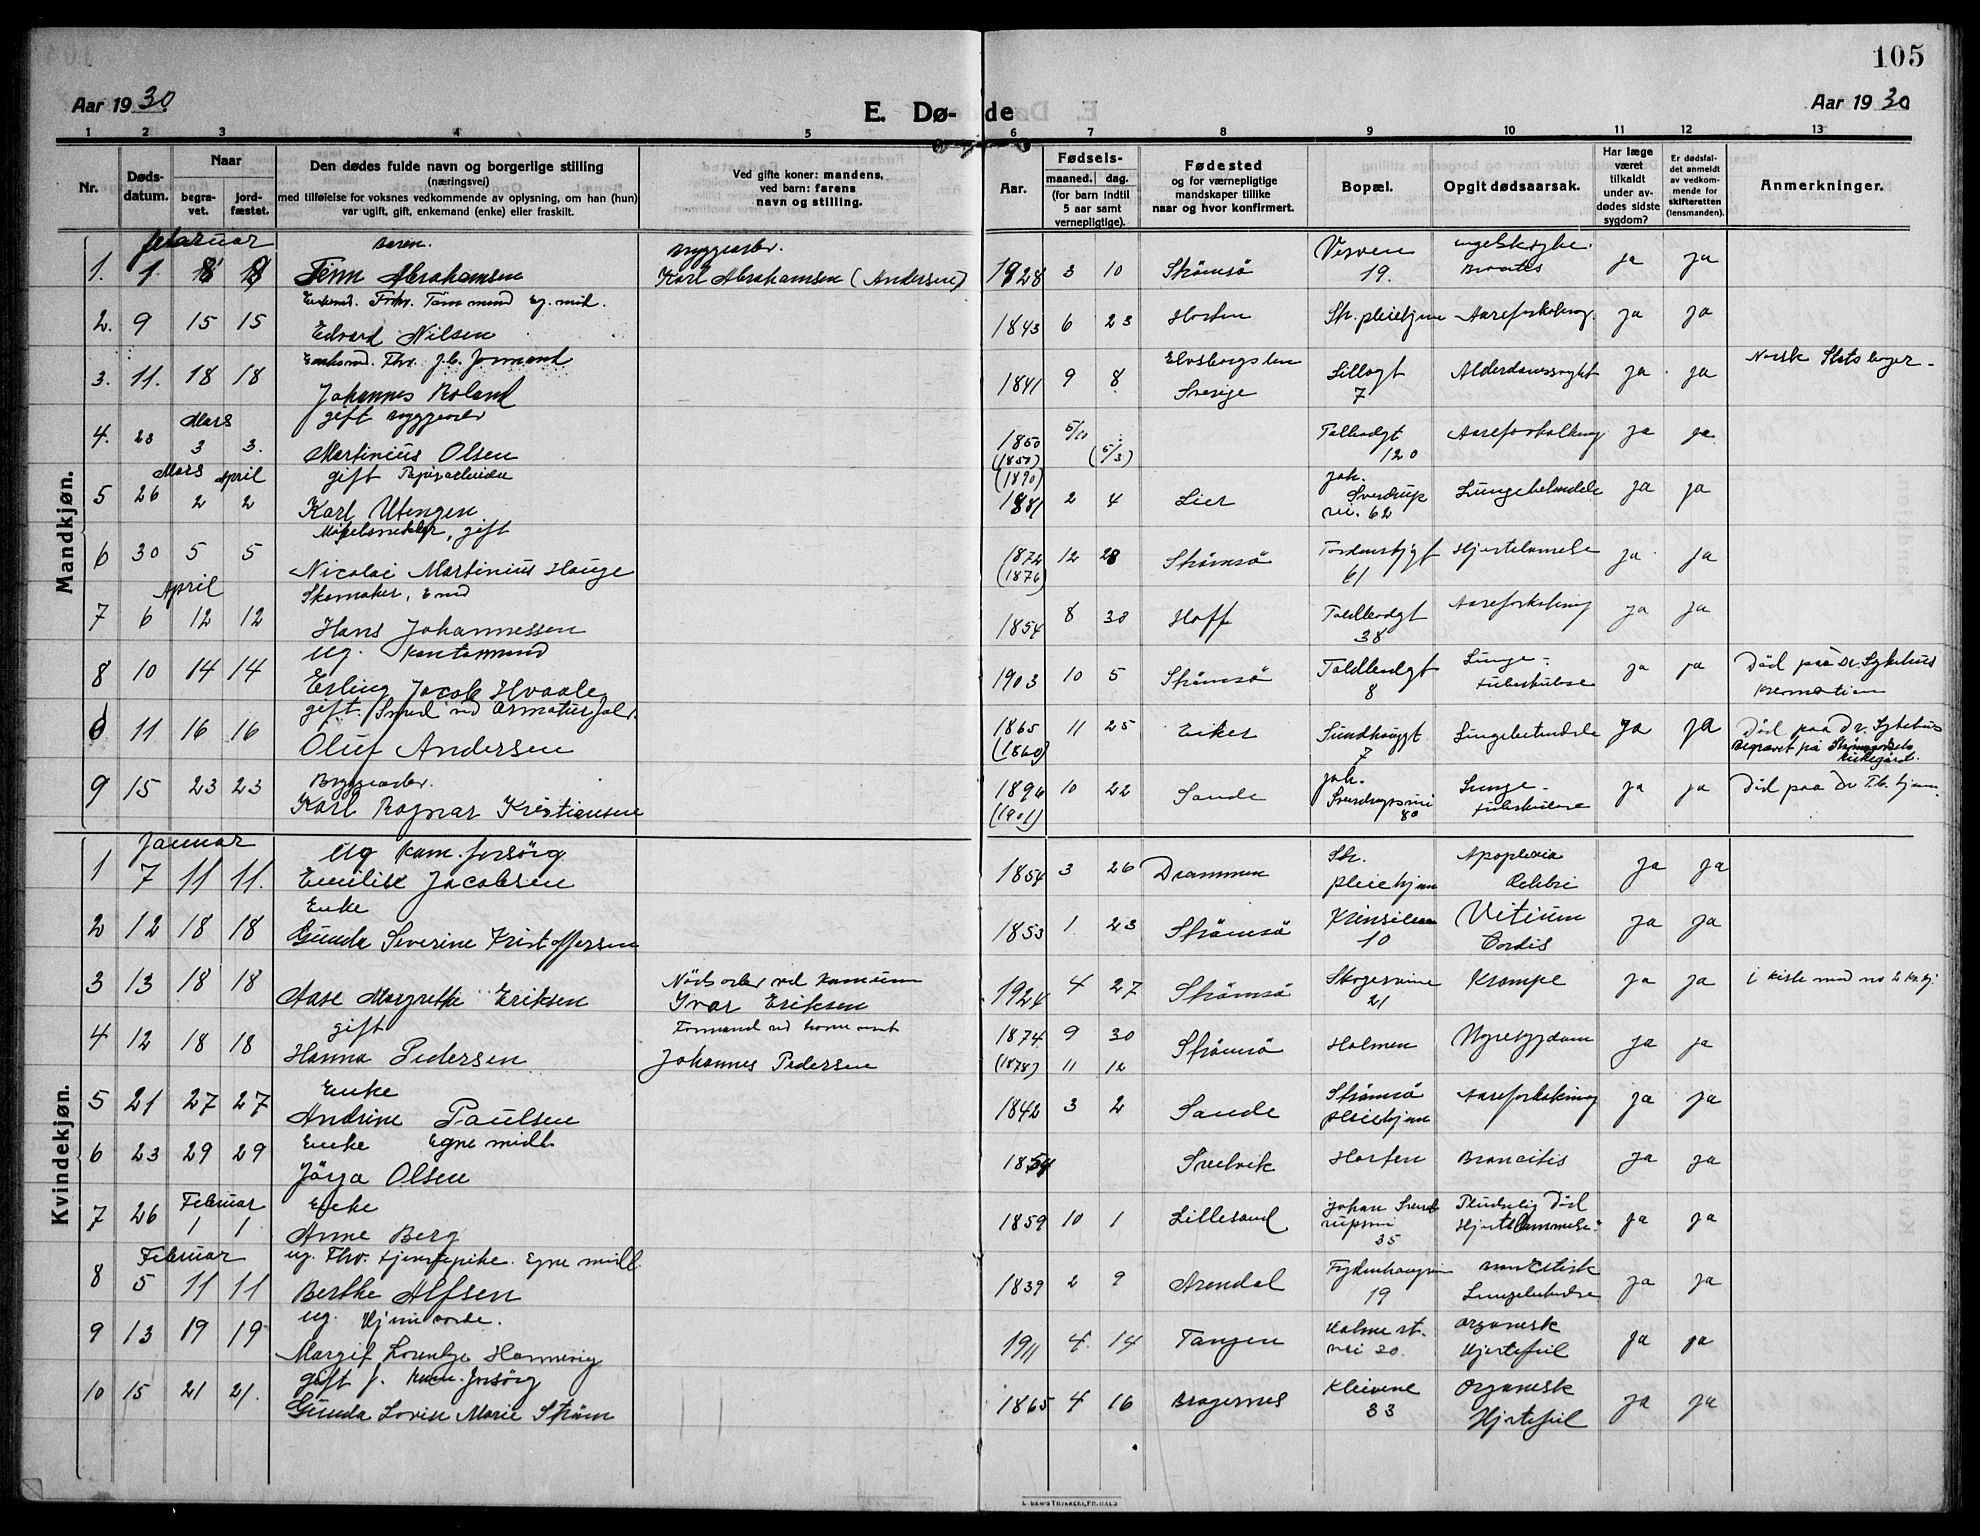 105
Aar 1930
E. Dø-
de
Aar 1930
1 2 3 4 5 6 7 8 9 10 11 12 13
Nr.
Døds-
datum.
Naar
begra-
vet.
jord-
fæstet.
Den dødes fulde navn og borgerlige stilling
(næringsvei)
med tilføielse for voksnes vedkommende av oplysning, om han (hun)
var ugift, gift, enkemand (enke) eller fraskilt.
Ved gifte koner: mandens,
ved barn: farens
navn og stilling.
Aar.
Fødsels-
maaned. dag.
(for barn indtil
5 aar samt
vernepligtige).
Fødested
og for værnepligtige
mandskaper tillike
naar og hvor konfirmert.
Bopæl.
Opgit dødsaarsak.
Har læge
været
tilkaldt
under av-
dødes sidste
sygdom?
Er dødsfal-
det anmeldt
av vedkom-
mende for
skifteretten
(lensmanden).
Anmerkninger.
Mandkjøn.
februar
1. 1 18 18 Finn Abrahamsen Karl Abrahamsen (Andersen) 1928 3 10 Strømsö 19. ja ja
2. 9 15 15 Edvard Nilsen 1843 6 23 Horten Str. pleiehjem Aareforkalkning ja ja
3. 11. 18 18 Johannes Roland 1841 9 8 Elvsborgs len
Sverige 7 Alderdomssvakhet ja ja Norsk Statsborger
gift byggearb
Mars
4. 23 3 3. Martinius Olsen 1850 5/10 (5/3) Tollbodgt
120 Aareforkalkning ja ja
Mars April
gift Papirarbeider
5 26 2 2 Karl Utengen (1890)
1881 2 4 Lier Joh.
Sverdrups
vei. 62 Lungebetendelse ja ja
gift
6 30 5 5 Nicolai Martinius Hauge 1872
(1876) 12 28 Strømsö Tordenskjgt
61 Hjertelamelse ja ja
April
Skomaker, Enkd
7 6 12 12 Hans Johannessen 1854 8 30 Hoff Toldbodgt
38 Aareforkalkning ja ja
ug. kontormand
8 10 14 14 Erling Jacob Hvaale 1903 10 5 Strømsö Toldbodgt
8 Lunge-
tuberkulose ja ja Död paa Dr. Sykehus
Kremation
gift. Smed ved Armaturfabr.
11 16 16 Oluf Andersen 1865
(1860) 11 25 Eiker Sundhaugt
7 Lungebetendelse ja ja Död paa Dr. Sykehus
Begravet på Strømsgodsets
kirkegård.
Byggearb.
9 15 23 23 Karl Ragnar Kristiansen 1896
(1901) 10 22 Sande Joh.
Sverdrupsvei
80 Lunge-
tuberkulose ja ja Död paa Dr Tb. hjem
Kvindekjøn.
Januar
ug kom. forsørg
1 7 11 11. Emilie Jacobsen 1854 3 26 Drammen Str.
pleiehjem Apoplexia
Celebri ja ja
Enke
2 12 18 18 Gunda Severine Kristoffersen 1853 1 23 Strømsö 10 Vitium
Cordis ja ja
3 13 18 18 Aase Margrethe Eriksen Nödsarb ved kommun
Ivar Eriksen 1924 4 27 Strømsö Skogerveien
21 Krampe ja ja i kiste med no 2
gift
4 12 18 18 Hanna Pedersen Johannes Pedersen 1874 9 30
(1878) 11 12 Strømsö Holmen Nyresygdom ja ja
Enke
5 21 27 27 Andrine Paulsen 1842 3 2 Sande Strømsö
pleiehjem Aareforkalkning ja ja
Enke Egne midl.
6 23 29 29 Jörga Olsen 1854 Svelvik Horten Broncitis ja ja
Februar
Enke
7 26 1 1 Anne Berg 1859 10 1 Lillesand Johan Sverd
rupsvei
35 Pludselig Död
Hjertelammelse ja ja
Februar
ug. Fhv. tjenestepike. Egne midl.
8 5 11 11 Berthe Alfsen 1839 2 9 Arendal 19 Broncitisk
Lungebetendelse ja ja
ug. Hjemmevær.
9 13 19 19 Margit Lorentze Hannevig 1911 4. 14 Tangen Holmestr.
vei 30. organisk
Hjertefeil ja ja
gift f. kom. forsørg
10 15 21 21. Gunda Lovise Marie Strøm 1865 4 16 Bragernes Kleivene
33 Organisk
Hjertefeil ja ja